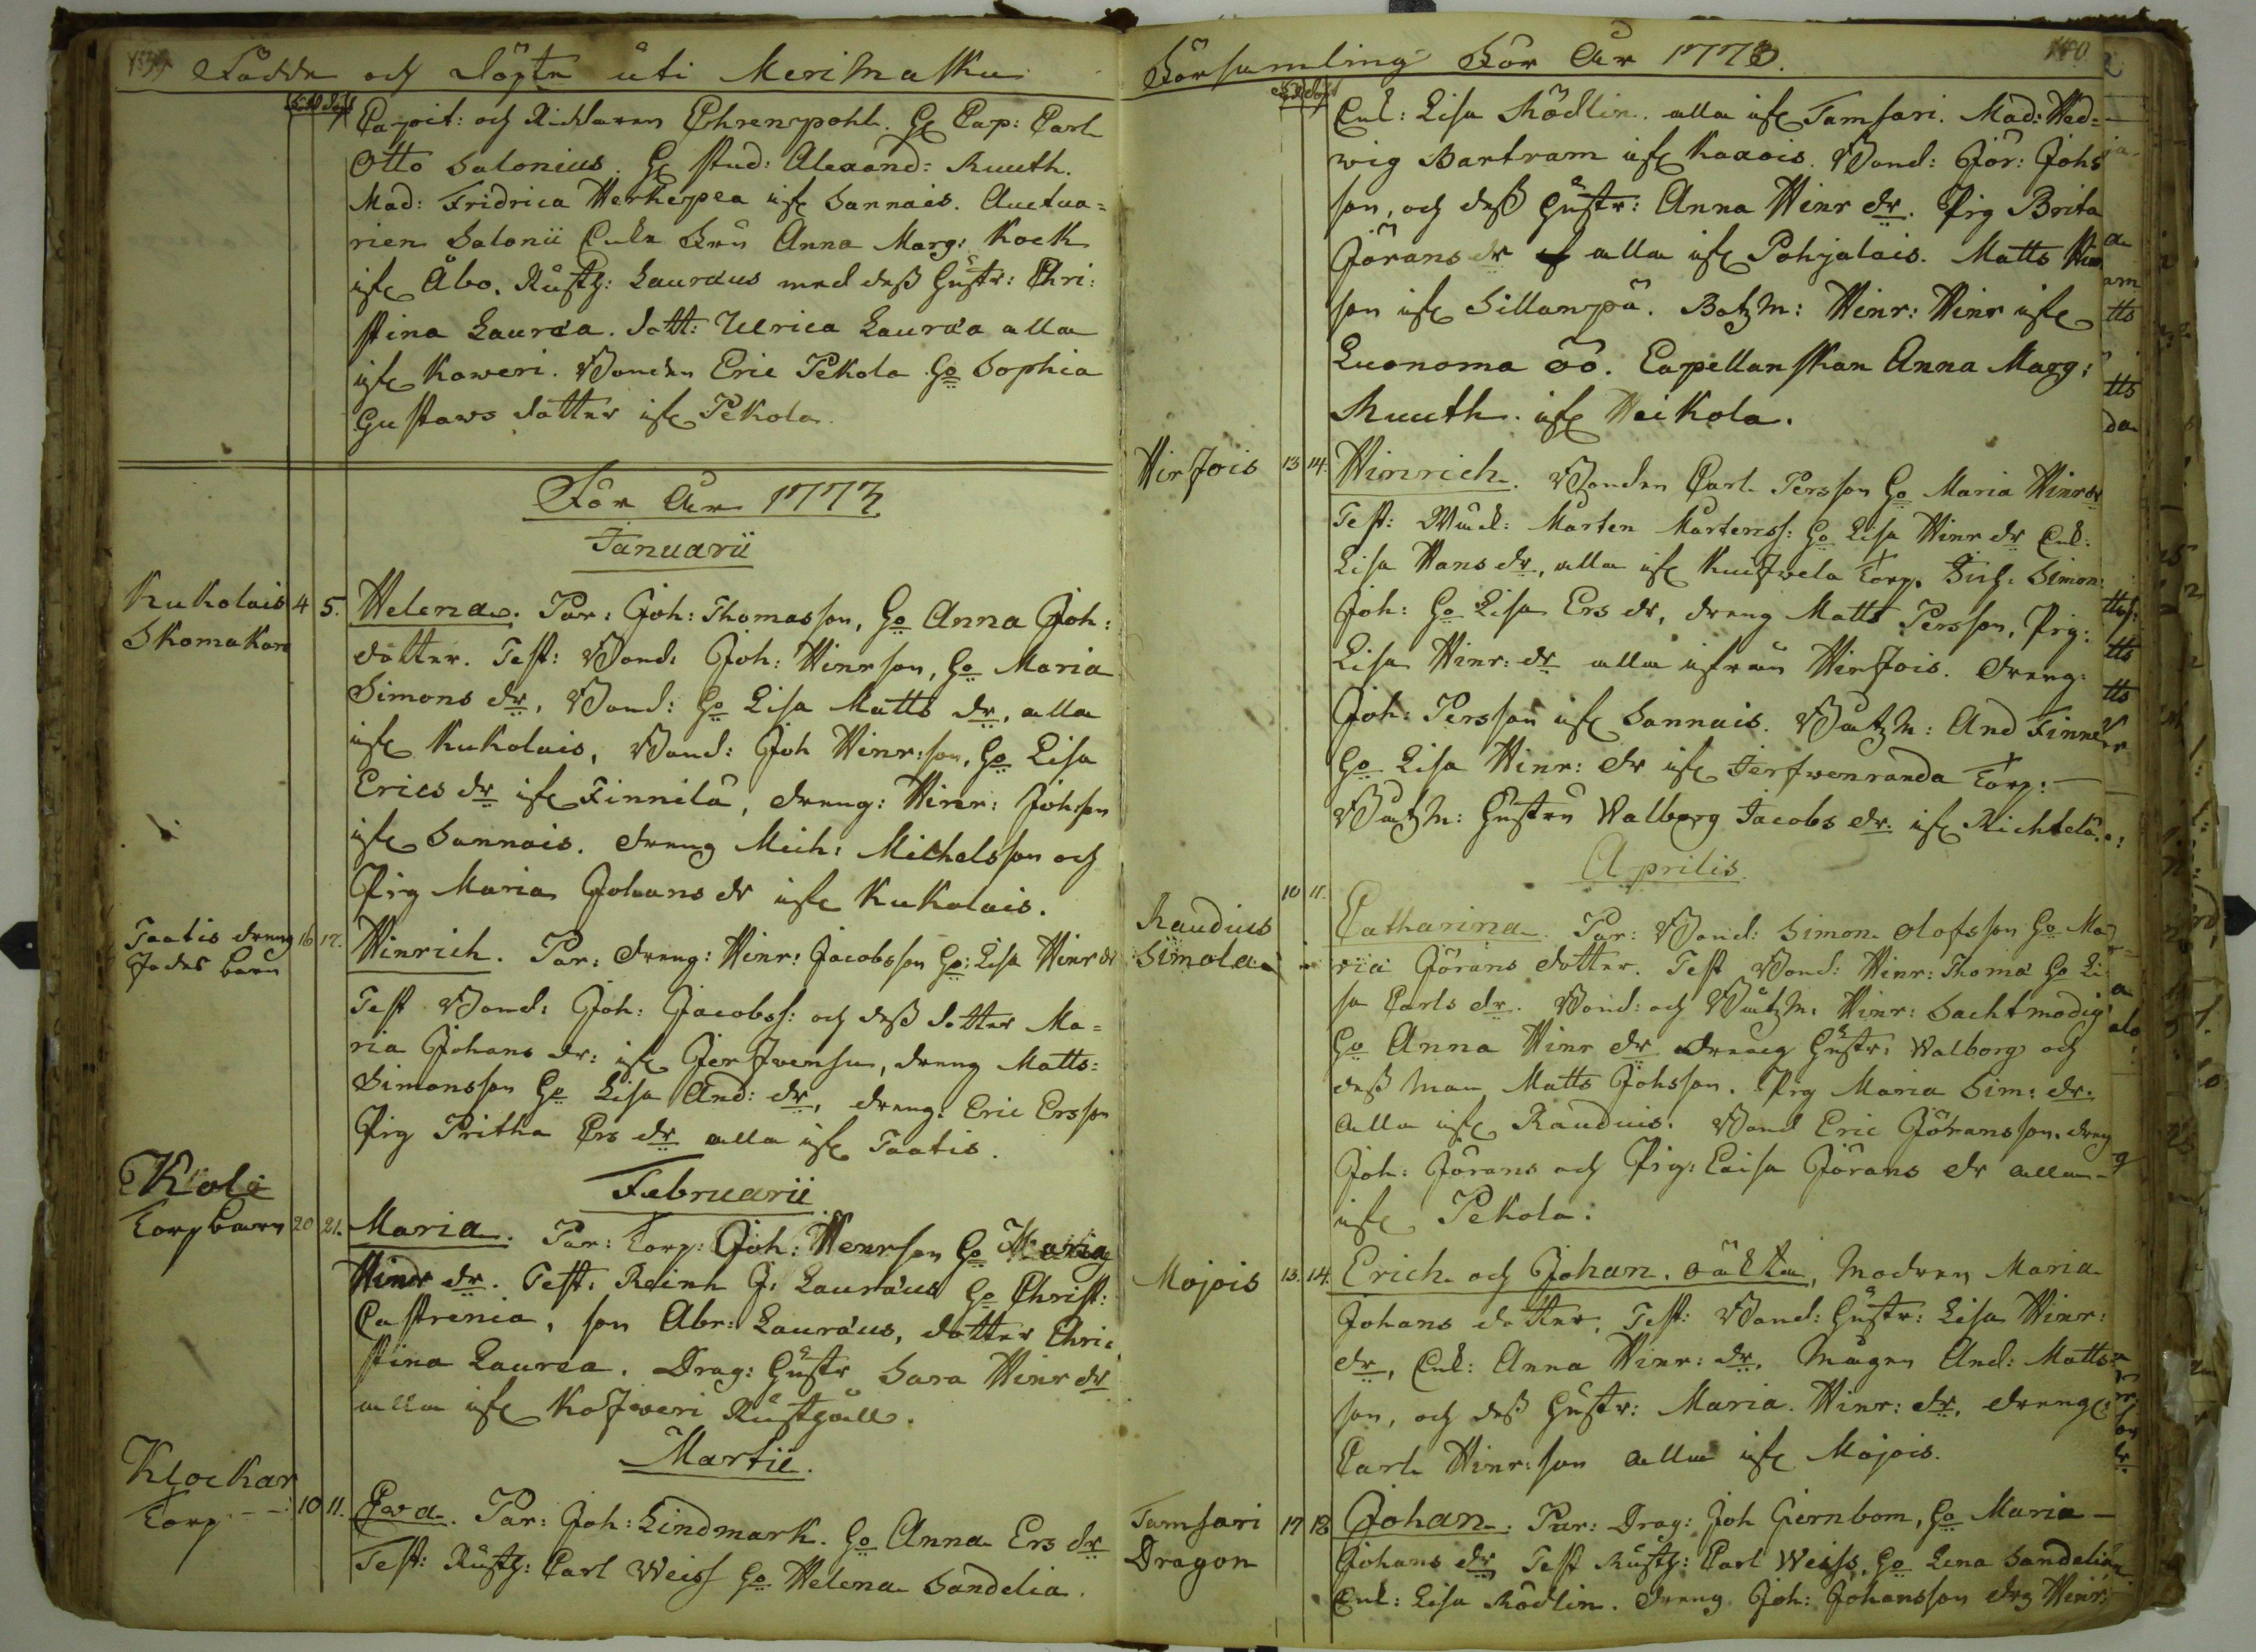 139 Födde och Döpte uti Merimasku
Född Döpt
Capit: och Riddaren Ehrenpohl. H: Cap: Carl
Otto Salonius. H: Stud: Alexand: Ruuth.
Mad: Fridrica Herkepea ifr: Sannais. Auctua=
rien Salonii Enke Fru Anna Marg: Kock
ifr: Åbo. Rusth: Lauræus med dess Hustr: Chri:
stina Lauræa. Dott: Ulrica Lauræa alla
ifr: Koweri. Bonden Eric Pekola Ho Sophia
Gustaws dotter ifr: Pekola.
För År 1773
Januarii
Kukolais 4 5. Helena. Par: Joh: Thomasson, Ho Anna Joh:
Skomakare dotter. Test: Bond: Joh: Hinrson, Ho Maria
Simons dr, Bond: Ho Lisa Matts dr, alla
ifr: Kukolais, Bond: Joh Hinr:son, Ho Lisa
Erics dr ifr: Finnilä, dreng: Hinr: Johson
ifr: Sannais. dreng Mich: Michelsson och
Pig Maria Johans dr ifr: Kukolais.
Taatis dreng 16 17. Hinrich. Par: dreng: Hinr: Jacobsson Ho: Lisa Hinr dr
barn Test Bond: Joh: Jacobss: och dess dotter Ma=
ria Johans dr: ifr: Jerfwensu, dreng Matts:
Simonsson Ho Lisa And: dr, dreng: Eric Ersson
Pig Pritha Ers dr alla ifr: Taatis.
Februarii
Koli
Torpbarn 20 21. Maria. Par: Torp: Joh: Henrson Ho Maria
Hindr dr. Test: Reinh J: Lauræus Ho Christ:
Castrenia, son Abr: Lauræus, dotter Chri:
stina Laurea. Drag: Hustr Sara Hinr dr
alla ifr: Kofweri Rusthåll.
Martii.
Klockar
Torp --: 10 11. Ewa. Par: Joh: Lindmark. Ho Anna Ers dr
Test: Rusth: Carl Weiss Ho Helena Sandelia.
Församling För År 1773. 140
Född Döpt
Enk: Lisa Rödlin. alla ifr: Tamsari. Mad: Hed=
wig Bartram ifr: Kaxois. Bond: Jör: Johs
son, och dess Hustr: Anna Hinr dr. Pig Brita
Jörans dr alla ifr: Pohjalais. Matts Hinr
son ifr: Sillanpä. Båtzm: Hinr: Hinr ifr:
Luonoma öö. Capellanskan Anna Marg:
Ruuth. ifr: Heikola.
Hirfois 13 14. Hinrich. Bonden Carl Persson Ho Maria Hinr dr
Test: Mårten Mårtenss: Ho Lisa Hinr dr Enk:
Lisa Hans dr, alla ifr: Kuifwela Torp. Simon
Joh: Ho Lisa Ers dr, dreng Matts Persson, Pig:
Lisa Hinr: dr alla ifrån Hirfois. dreng:
Joh: Persson ifr: Sannais. Båtzm: And Finne
Ho Lisa Hinr: dr ifr: Jerfwenranda Torp: —
Båtzm: Hustru Walborg Jacobs dr. ifr: Richtelä.
Aprilis.
Raudius 10 11. Catharina. Par: Bond: Simon Olofsson Ho Ma
Simola ria Jörans dotter. Test Bond: Hinr: Thomæ Ho Li
sa Carls dr. Bond: och Båtzm: Hinr: Sachtmodig
Ho Anna Hinr dr dreng Hustr: Walborg och
dess man Matts Johsson. Pig Maria Sim: dr.
alla ifr: Rauduis. Bond Eric Jöransson. dreng
Joh: Jörans och Pig: Caisa Jörans dr alla
ifr: Pekola.
Mojois 13. 14. Erich och Johan. oäkta, Modren Maria
Johans dotter. Test: Bond: Hustr: Lisa Hinr:
dr, Enk: Anna Hinr: dr. Mågen And: Matts
son, och dess Hustr: Maria. Hinr: dr. dreng:
Carl Hinr: son alla ifr: Mojois.
Tamsari 17 18 Johan. Par: Drag: Joh Giernbom, Ho Maria —
Dragon Johans dr Test Rusth: Carl Weiss, Ho Lena Sandelia
Enk: Lisa Rödlin. dreng Joh: Johansson drg Hinr: